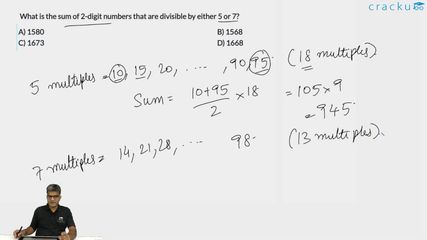 cracku
What is the sum of 2-digit numbers that are divisible by either 5 or 7?
A) 1580 B) 1568
C) 1673 D) 1668
5 multiples = 10, 15, 20, ..... , 90, 95. (18 multiples)
Sum = 10+95/2 × 18 = 105 × 9
= 945.
7 multiples = 14, 21, 28, ..... 98. (13 multiples).